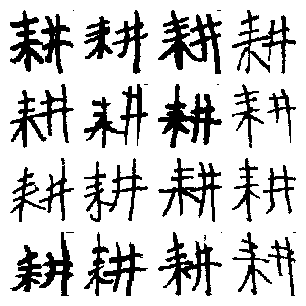 耕耕耕耕
耕耕耕耕
耕耕耕耕
耕耕耕耕